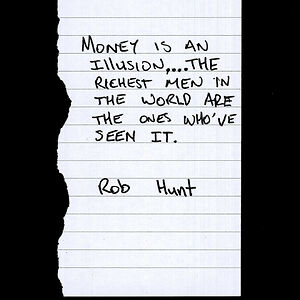 MONEY IS AN
ILLUSION,...THE
RICHEST MEN IN
THE WORLD ARE
THE ONES WHO'VE
SEEN IT.
Rob Hunt